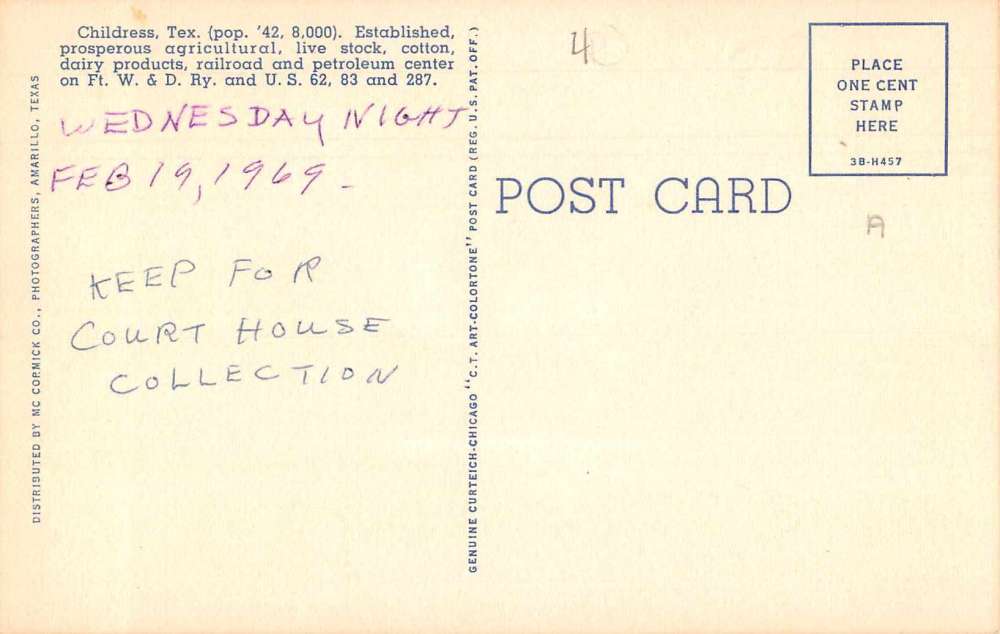 Childress, Tex. (pop. '42, 8,000). Established,
prosperous agricultural, live stock, cotton,
dairy products, railroad and petroleum center
on Ft. W. & D. Ry. and U. S. 62, 83 and 287.
WEDNESDAY NIGHT
FEB 19, 1969 -
KEEP FOR
COURT HOUSE
COLLECTION
DISTRIBUTED BY MC CORMICK CO., PHOTOGRAPHERS, AMARILLO, TEXAS
GENUINE CURTEICH-CHICAGO "C.T. ART-COLORTONE" POST CARD (REG. U.S. PAT. OFF.)
4
POST CARD
PLACE
ONE CENT
STAMP
HERE
3B-H457
A